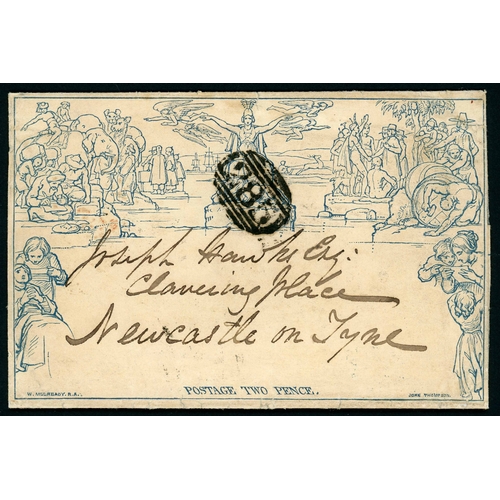 Joseph Hawks Esq:
Clavering Place
Newcastle on Tyne
POSTAGE TWO PENCE.
W. MULREADY, R.A.
JOHN THOMPSON.